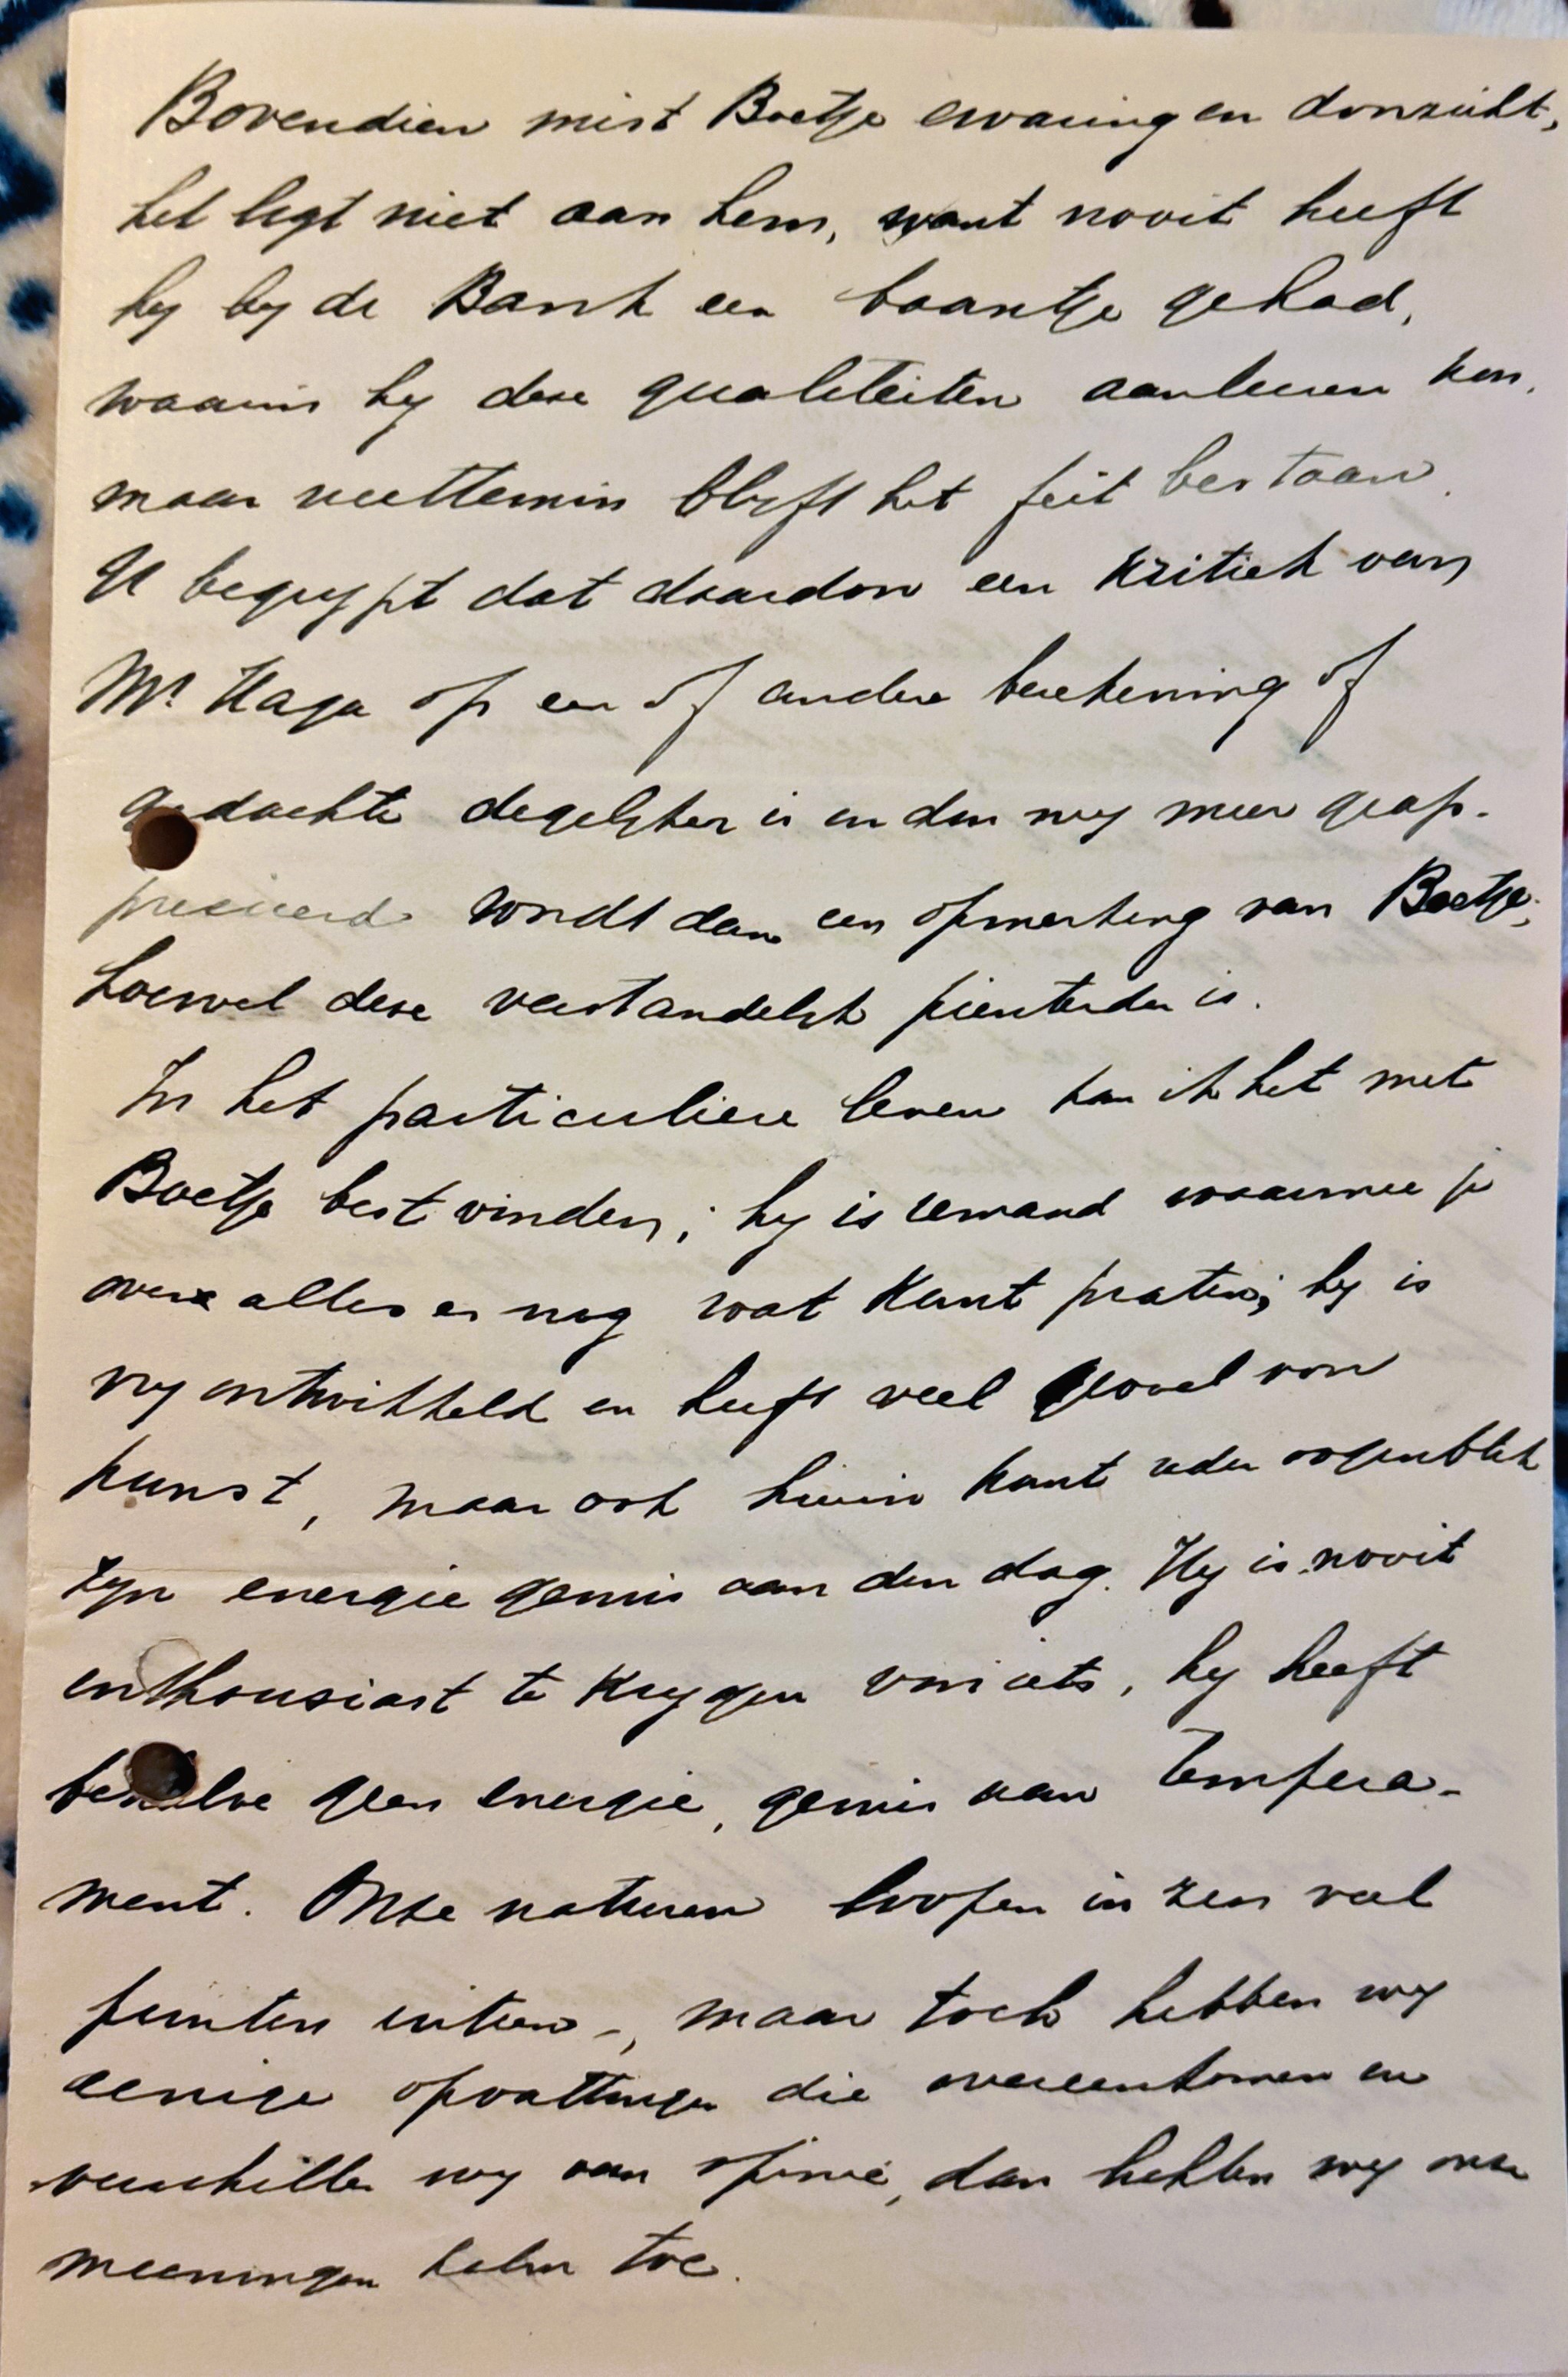 Bovendien mist Boetje ervaring en doorzicht,
het ligt niet aan hem, want nooit heeft
hij bij de Bank een baantje gehad,
waarin hij deze qualiteiten aanleeren kon,
maar niettemin blijft het feit bestaan.
U begrijpt dat daardoor een kritiek van
Mr Haga op een of andere berekening of
gedachte degelijker is en dan nog meer geap-
precieerd wordt dan een opmerking van Boetje,
hoewel deze verstandelijk pienterder is.
In het particuliere leven kan ik het met
Boetje best vinden; hij is iemand waarmee je
over alles en nog wat kunt praten; hij is
vrij ontwikkeld en heeft veel gevoel voor
kunst, maar ook hierin komt ieder oogenblik
zijn energie gemis aan den dag. Hij is nooit
enthousiast te krijgen voor iets, hij heeft
behalve geen energie, gemis aan tempera-
ment. Onze naturen loopen in zeer veel
punten uiteen, maar toch hebben wij
eenige opvattingen die overeenkomen en
verschillen wij van opinie, dan lichten wij onze
meeningen kalm toe.